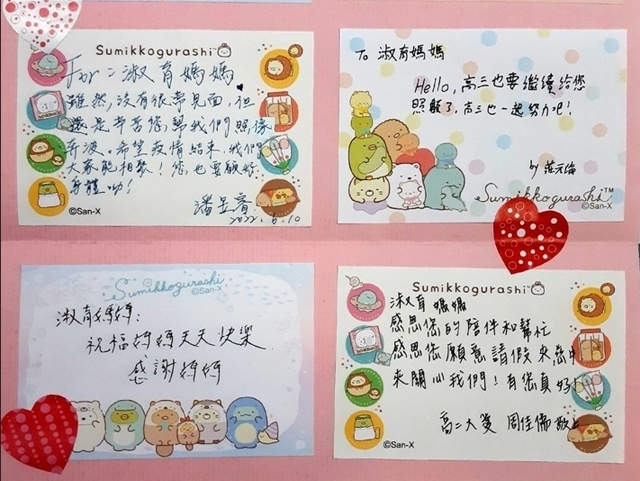 Sumikkogurashi
For：淑育媽媽
雖然沒有很常見面，但
還是辛苦您幫我們照像
奔波。希望疫情結束，我們
大家能相聚！您也要顧好
身體呦！
潘昱
2022.6.10
©San-X
To 淑育媽媽
Hello, 高三也要繼續給您
照顧了，高三也一起努力吧！
by
Sumikkogurashi™
©San-X
Sumikkogurashi
©San-X
淑育媽媽：
祝福媽媽天天快樂
感謝媽媽
Sumikkogurashi
淑育媽媽
感恩您的陪伴和幫忙
感恩您願意請假來慈中
來關心我們！有您真好！
高二大愛 周佳儒敬上
©San-X